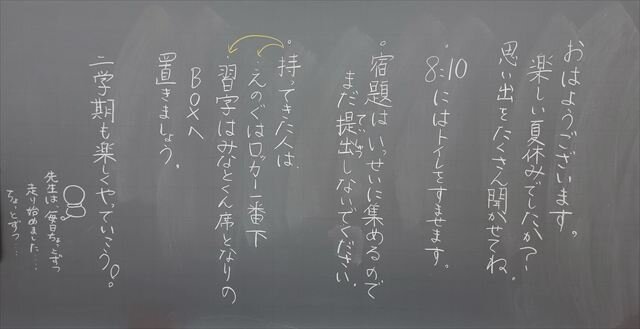 おはようございます。
楽しい夏休みでしたか？
思い出をたくさん聞かせてね。
8:10
にはトイレをすませます。
・宿題はいっせいに集めるので
まだ提出しないでください。
ていしゅつ
・持ってきた人は、
・えのぐはロッカー一番下
・習字はみなとくん席となりの
BOXへ
置きましょう。
二学期も楽しくやっていこう!。
先生は、毎日ちょこずつ
走り始めました…
ちょっとずつ…